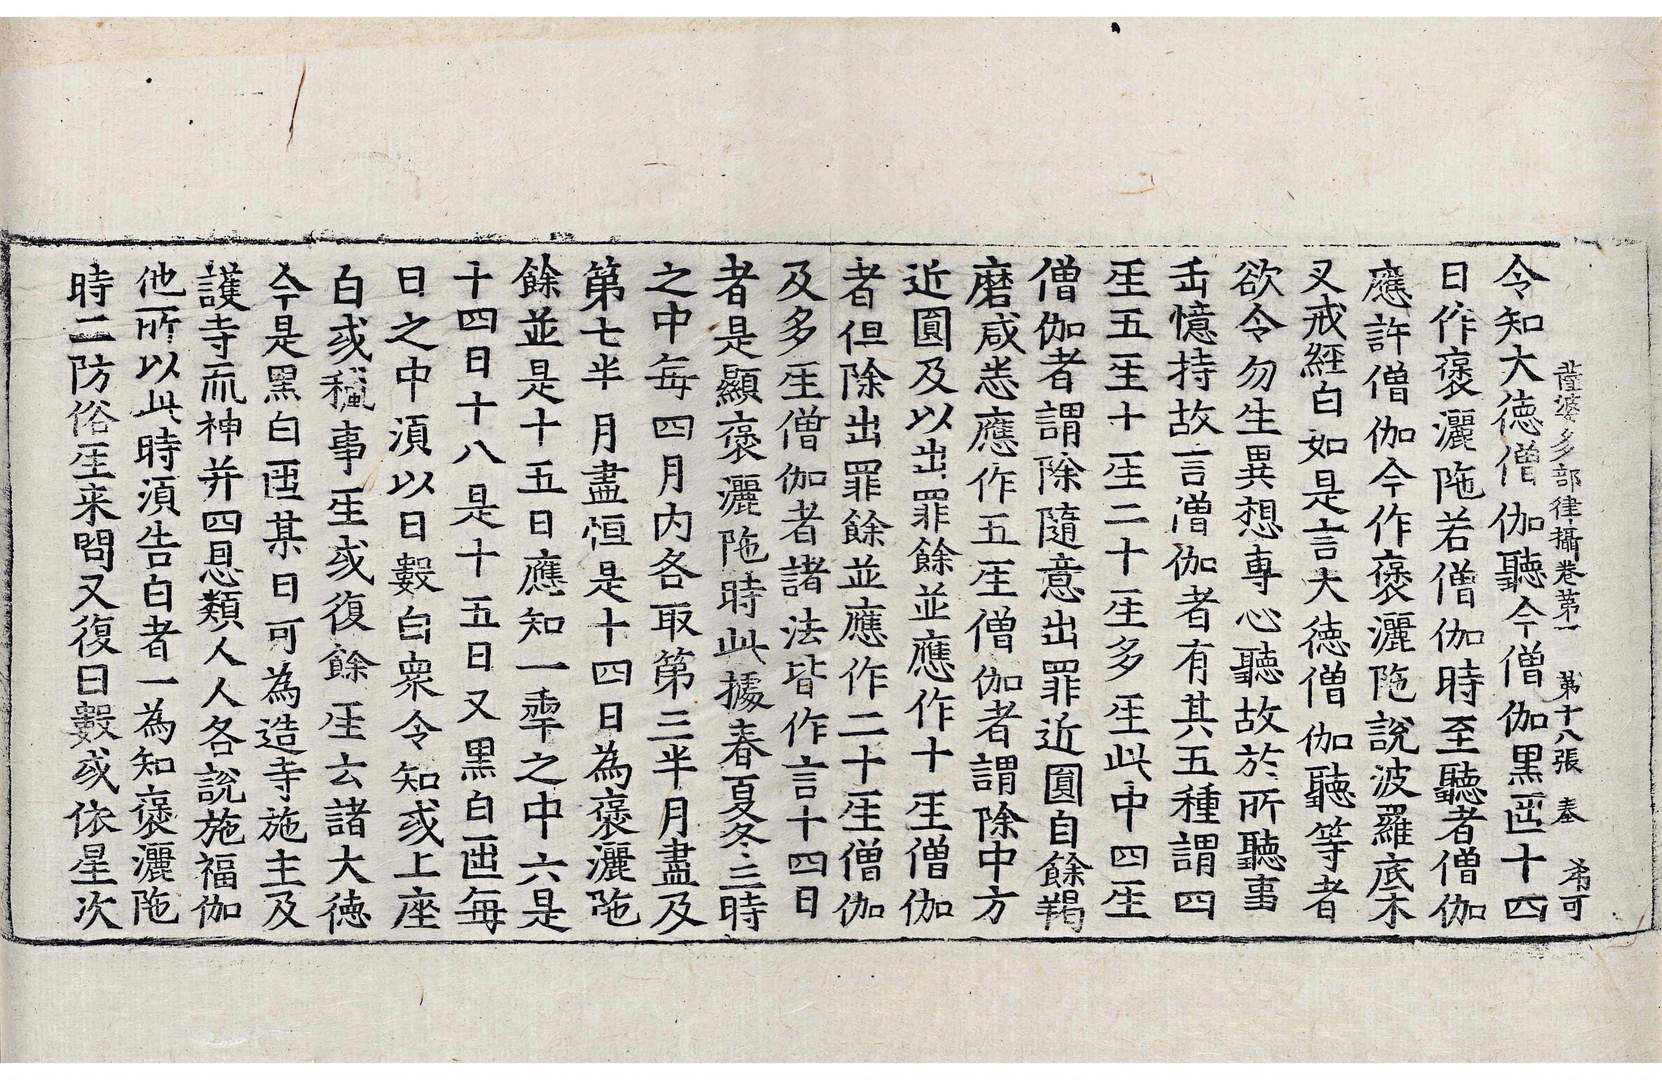 薩婆多部律攝卷第一 第十八張 奏
令知大徳僧伽聽今僧伽黑𠥱十四
日作褒灑陁若僧伽時至聽者僧伽
應許僧伽今作褒灑陁說波羅底木
叉戒經白如是言大徳僧伽聽等者
欲令勿生異想專心聽故於所聽事
𠙺憶持故言僧伽者有其五種謂四
𤯔五𤯔十𤯔二十𤯔多𤯔此中四𤯔
僧伽者謂除隨意出罪近圓自餘羯
磨咸悉應作五𤯔僧伽者謂除中方
近圓及以出罪餘並應作十𤯔僧伽
者但除出罪餘並應作二十𤯔僧伽
及多𤯔僧伽者諸法皆作言十四日
者是顯褒灑陁時此據春夏冬三時
之中每四月內各取第三半月盡及
第七半月盡恒是十四日為褒灑陁
餘並是十五日應知一𠡦之中六是
十四日十八是十五日又黑白𠥱每
日之中湏以日數白衆令知或上座
白或𥠢事𤯔或復餘𤯔云諸大徳
今是黑白𠥱某日可為造寺施主及
護寺𠀑神并四恩類人人各說施福伽
他所以此時湏告白者一為知褒灑陁
時二防俗𤯔来問又復日數或依星次